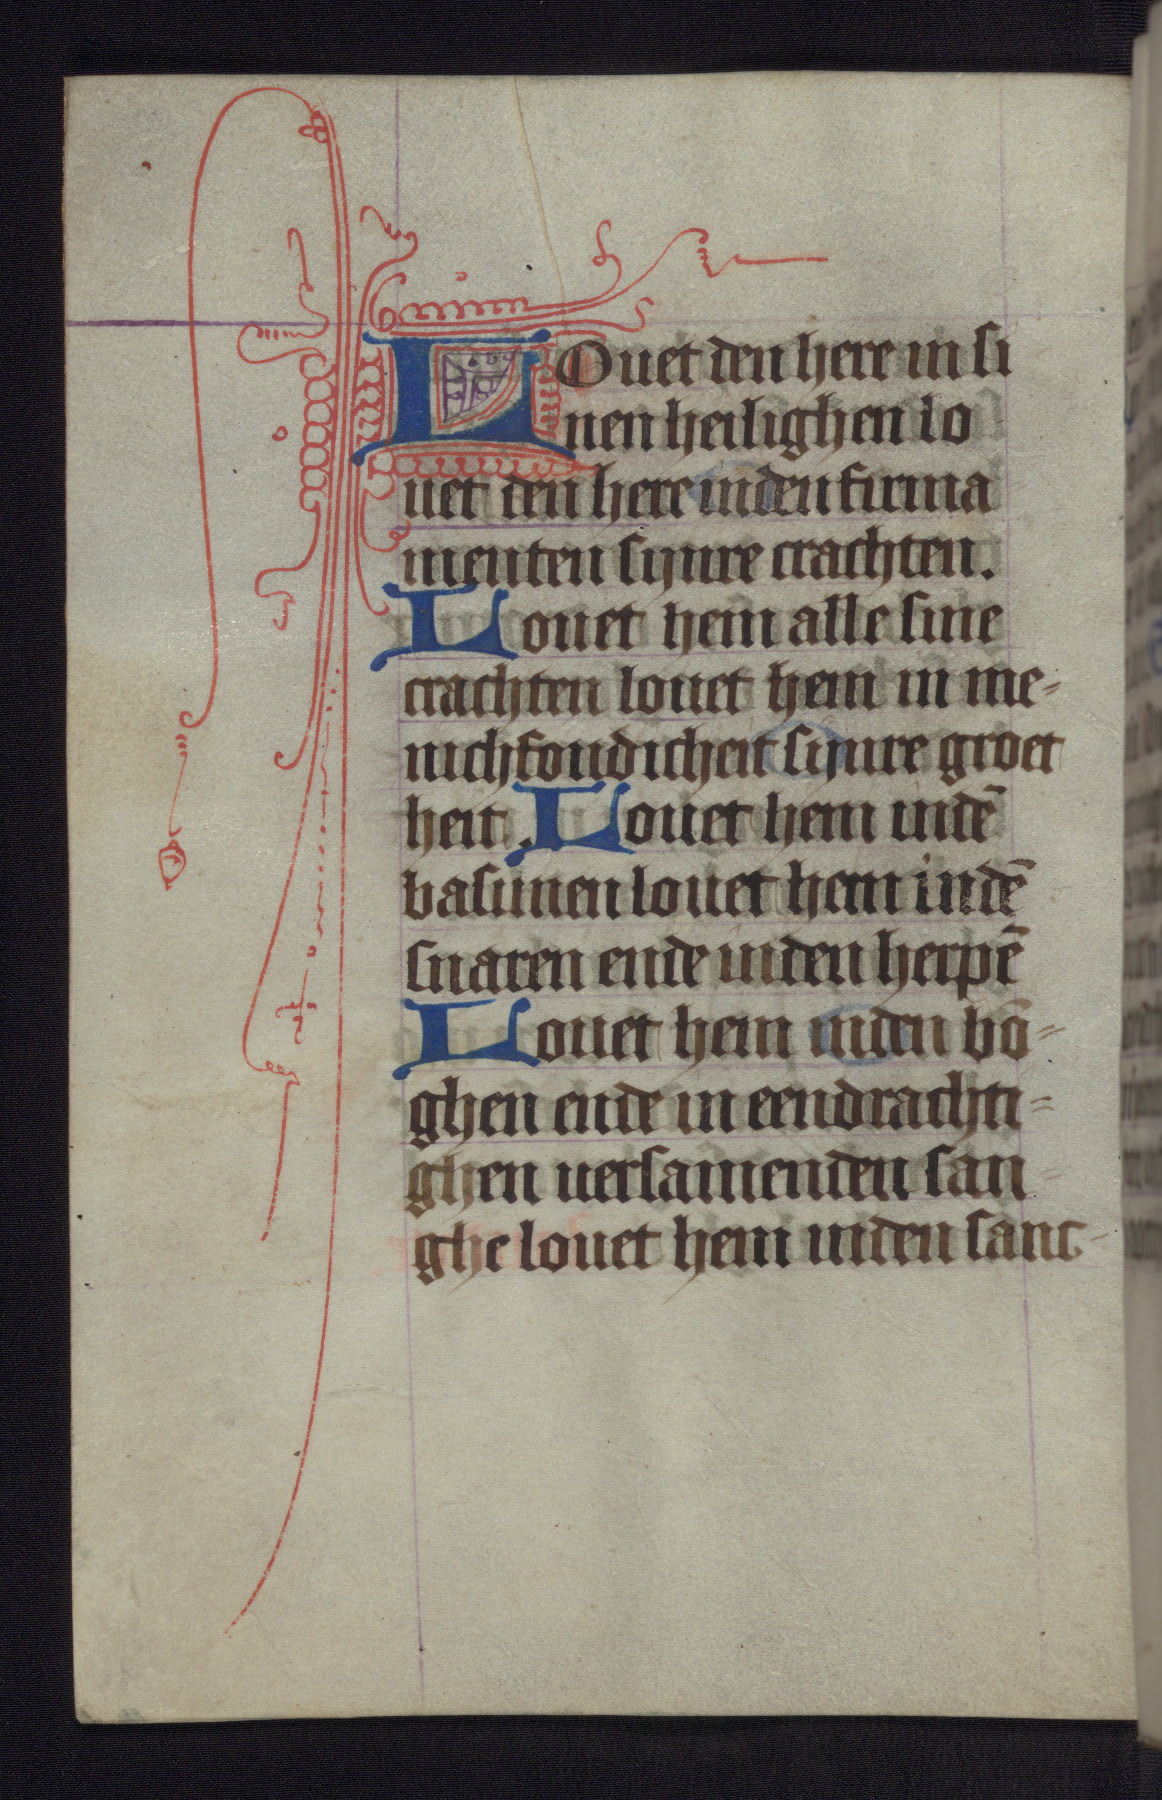 LOuet den here in si
nen heilighen lo
uet den here inden firma
menten sijnre crachten.
Louet hem alle sine
crachten louet hem in me-
nichfoudicheit sijnre groet
heit. Louet hem indē
basunen louet hem indē
snaren ende inden herpē
Louet hem inden bō-
ghen ende in eendrachti-
ghen uersamenden san-
ghe louet hem inden sanc-